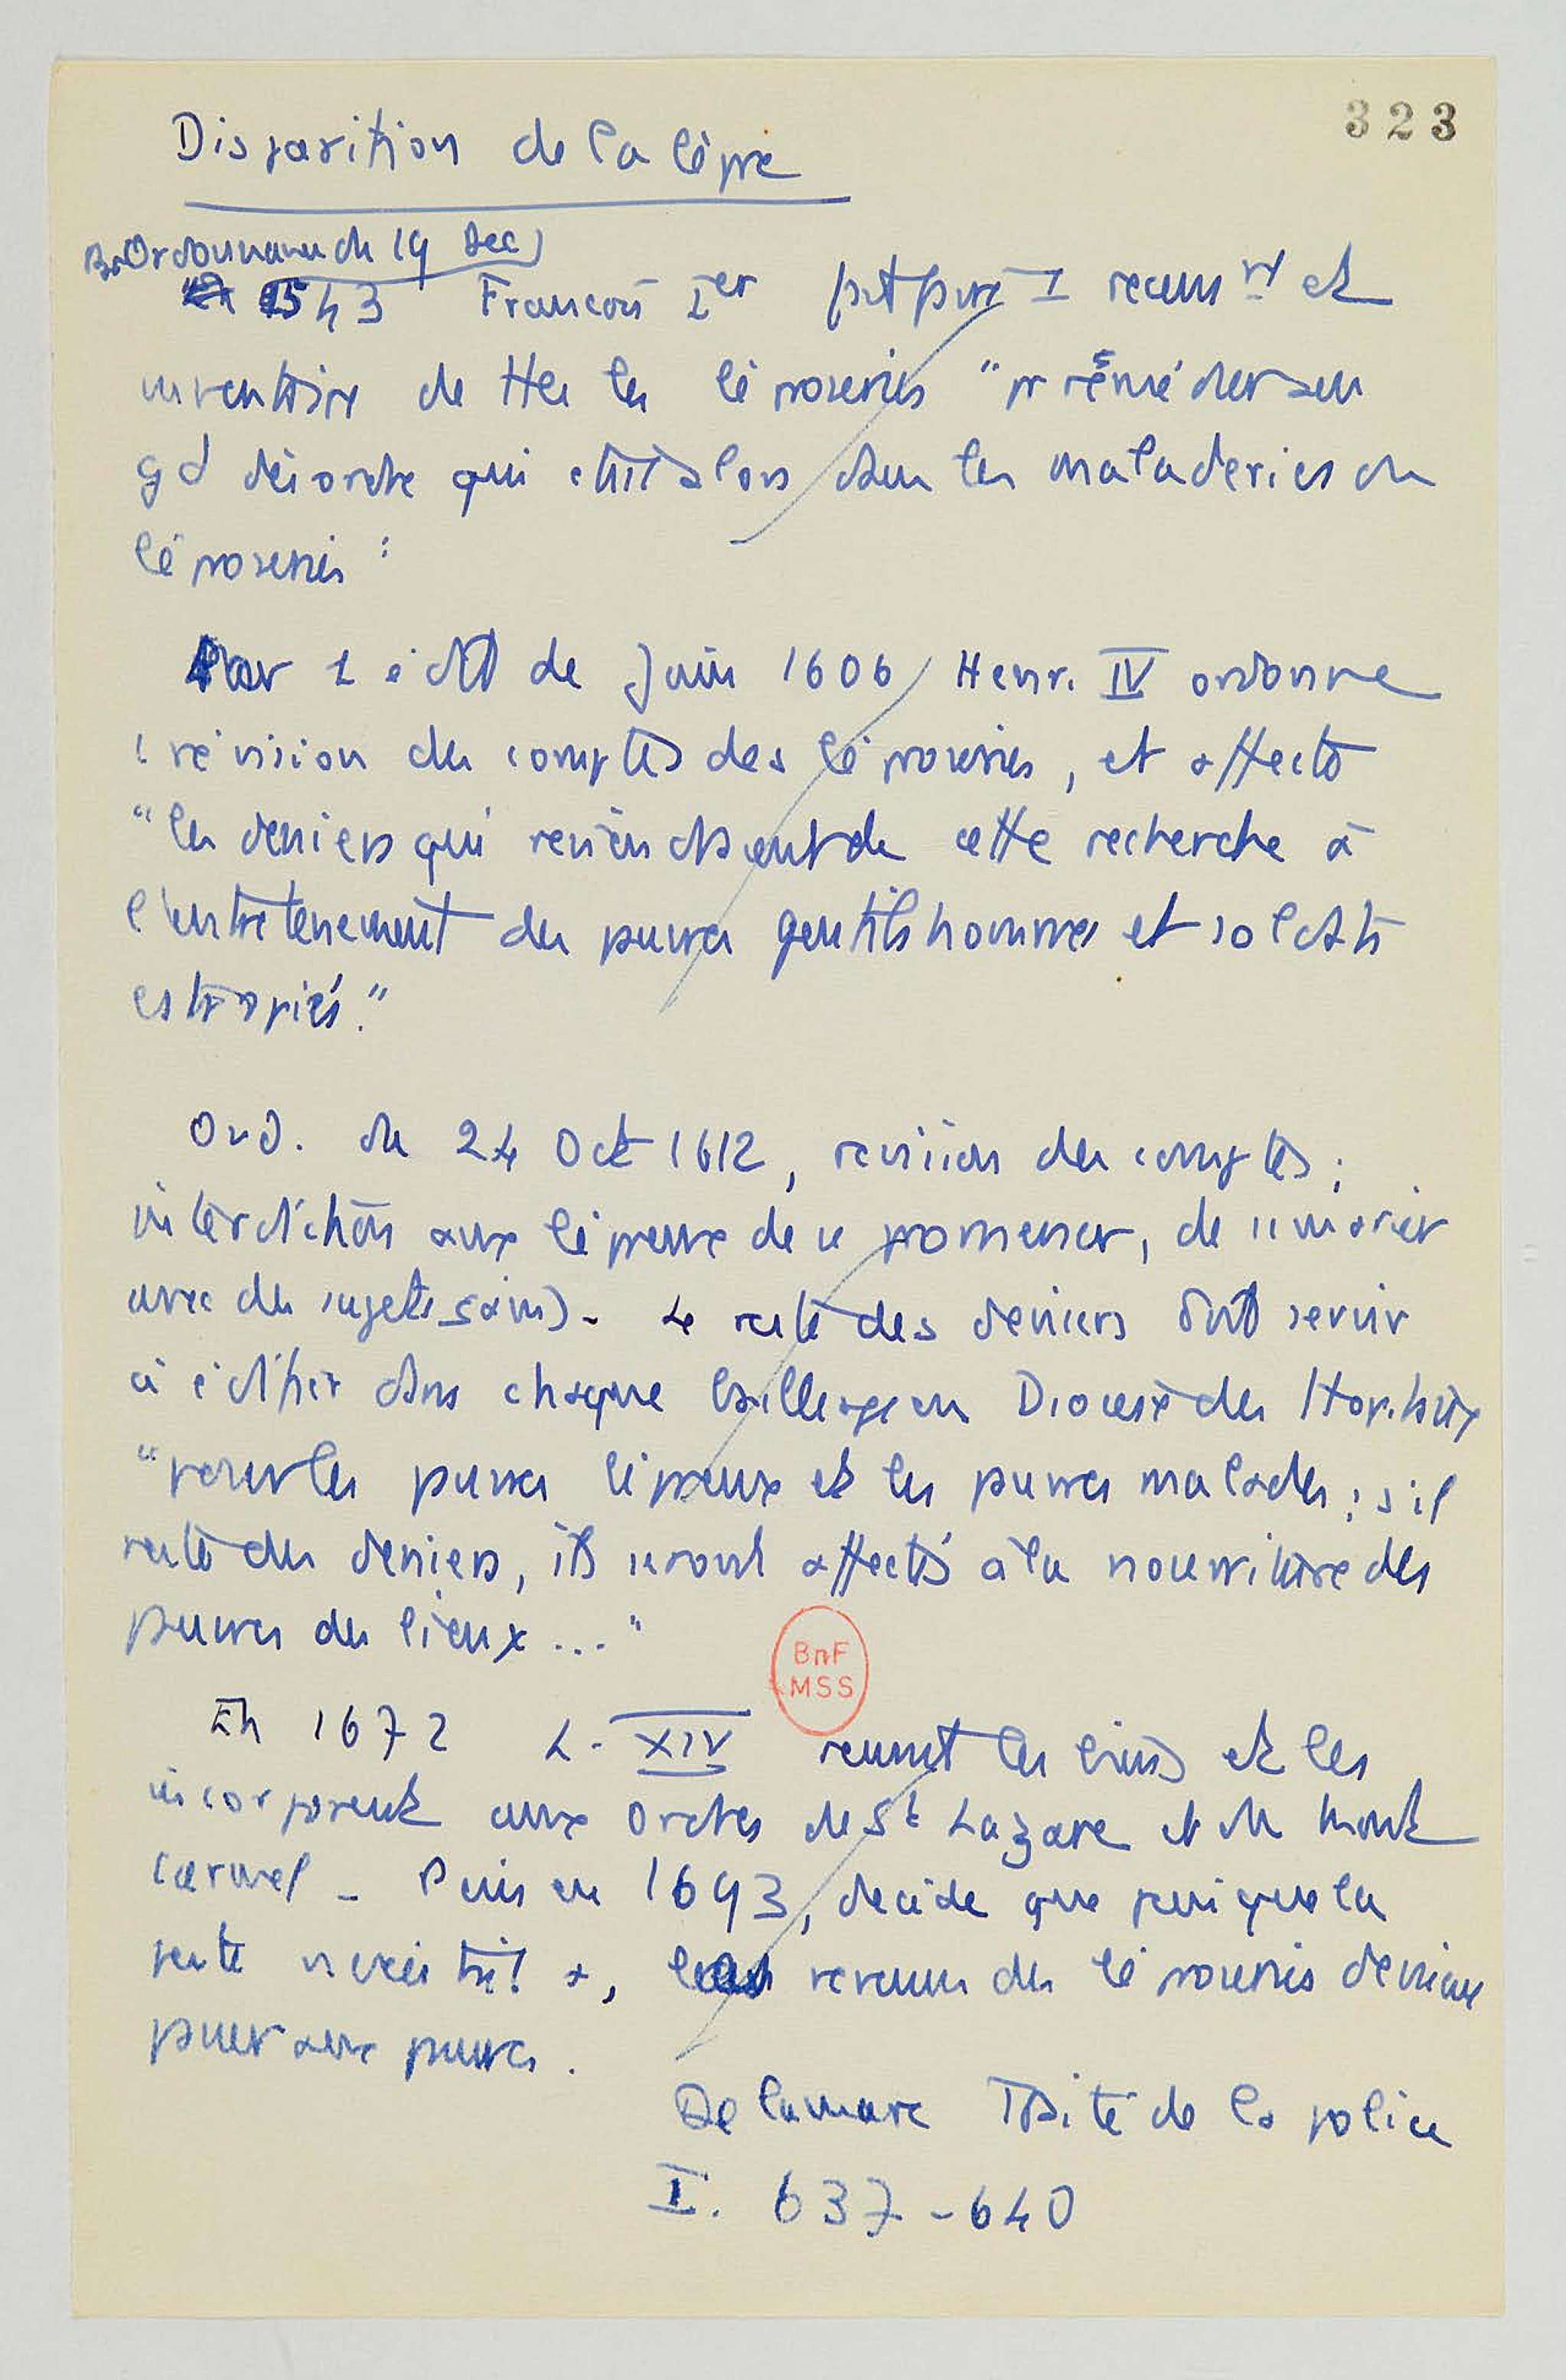 323
Disparition de la lèpre
Par Ordonnance du 19 Dec
1543 François Ier fait faire 1 recenst et
inventaire de ttes les léproseries "pr remédier au
gd désordre qui était alors dans les maladeries ou
léproseries"
Par 1 édit de Juin 1606, Henri IV ordonne
1 révision des comptes des léproseries, et affecte
"les deniers qui reviendraient de cette recherche à
l'entretenement des pauvres gentilshommes et soldats
estropiés."
Ord. du 24 Oct 1612, revision des comptes ;
interdiction aux lépreux de se promener, de se marier
avec des sujets sains). Le reste des deniers doit servir
à édifier dans chaque baillage ou Diocèse des Hopitaux
"pour les pauvres lépreux et les pauvres malades ; s'il
reste des deniers, ils seront affectés à la nourriture des
pauvres des lieux ..."
BnF
MSS
En 1672 L. XIV reunit les biens et les
incorporent aux ordres de St Lazare et du Mont
Carmel - Puis en 1693, décide que puisque la
peste n'existait +, les revenus des léproseries devaient
passer aux pauvres.
Delamare Traité de la police
I. 637-640